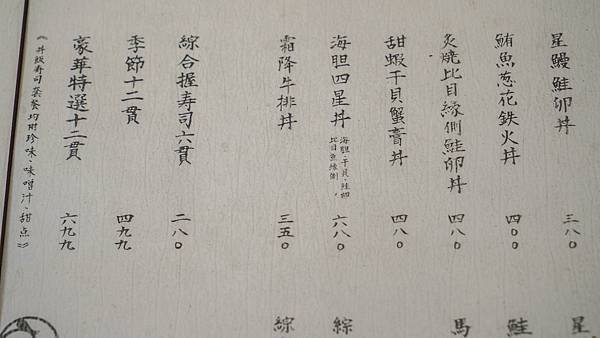 星鰻鮭卵丼 三八〇
鮪魚葱花鉄火丼 四〇〇
炙燒比目緣側鮭卵丼 四八〇
甜蝦干貝蟹膏丼 四八〇
海胆四星丼 海胆、干貝、鮭卵、比目魚緣側 六八〇
霜降牛排丼 三五〇
綜合握寿司六貫 二八〇
季節十二貫 四九九
豪華特選十二貫 六九九
《丼飯寿司套餐均附珍味、味噌汁、甜点》
星
鮭
馬
綜
綜